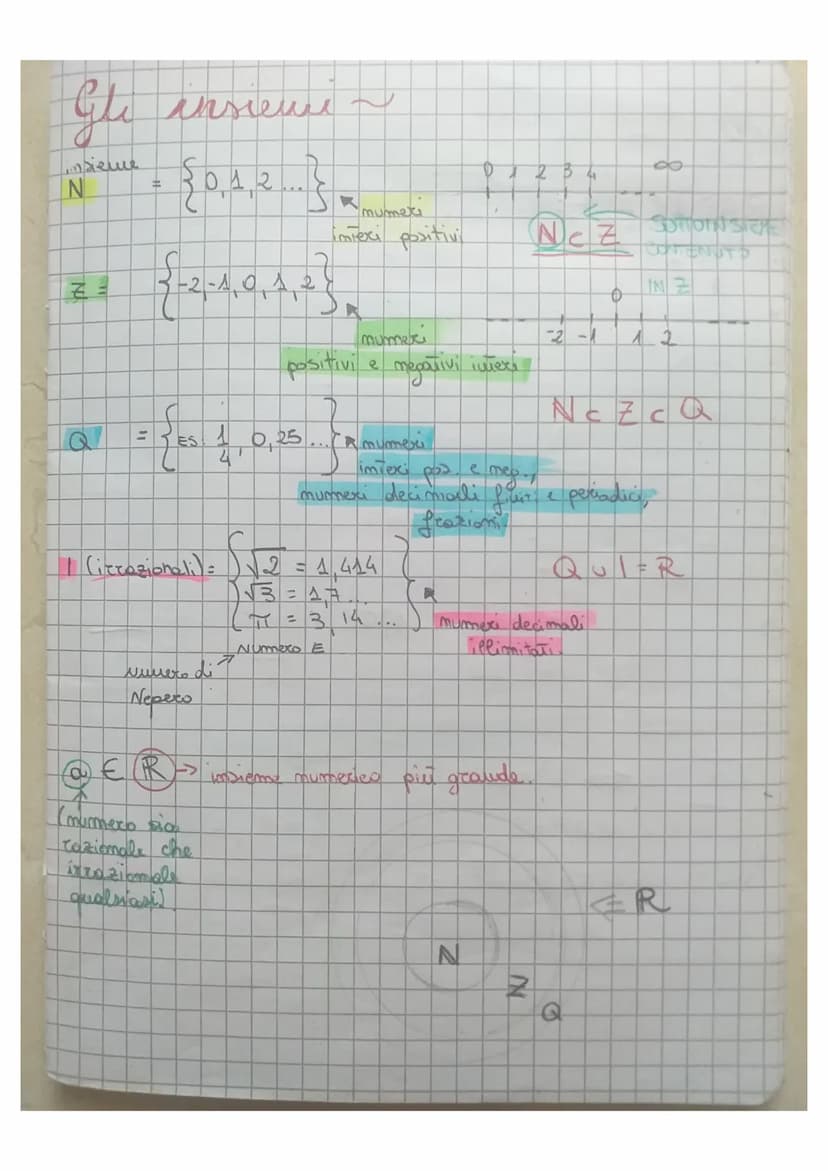 Gli insiemi ~
insieme
N = {0,1,2...}
numeri
interi positivi
0 1 2 3 4 ... ∞
N ⊂ Z SOTTOINSIEME
CONTENUTO
IN Z
Z = {-2,-1,0,1,2}
numeri
positivi e negativi interi
0
-2 -1 1 2
N ⊂ Z ⊂ Q
Q = {ES. 1/4, 0,25...}
numeri
interi pos. e neg.,
numeri decimali finiti e periodici,
frazioni
I (irrazionali) = {√2 = 1,414
√3 = 1,7...
π = 3,14...}
Q ∪ I = R
numeri decimali
illimitati
Numero E
Numero di
Nepero
a ∈ R → insieme numerico più grande.
(numero sia
razionale che
irrazionale
qualsiasi)
⇐ R
N
Z
Q